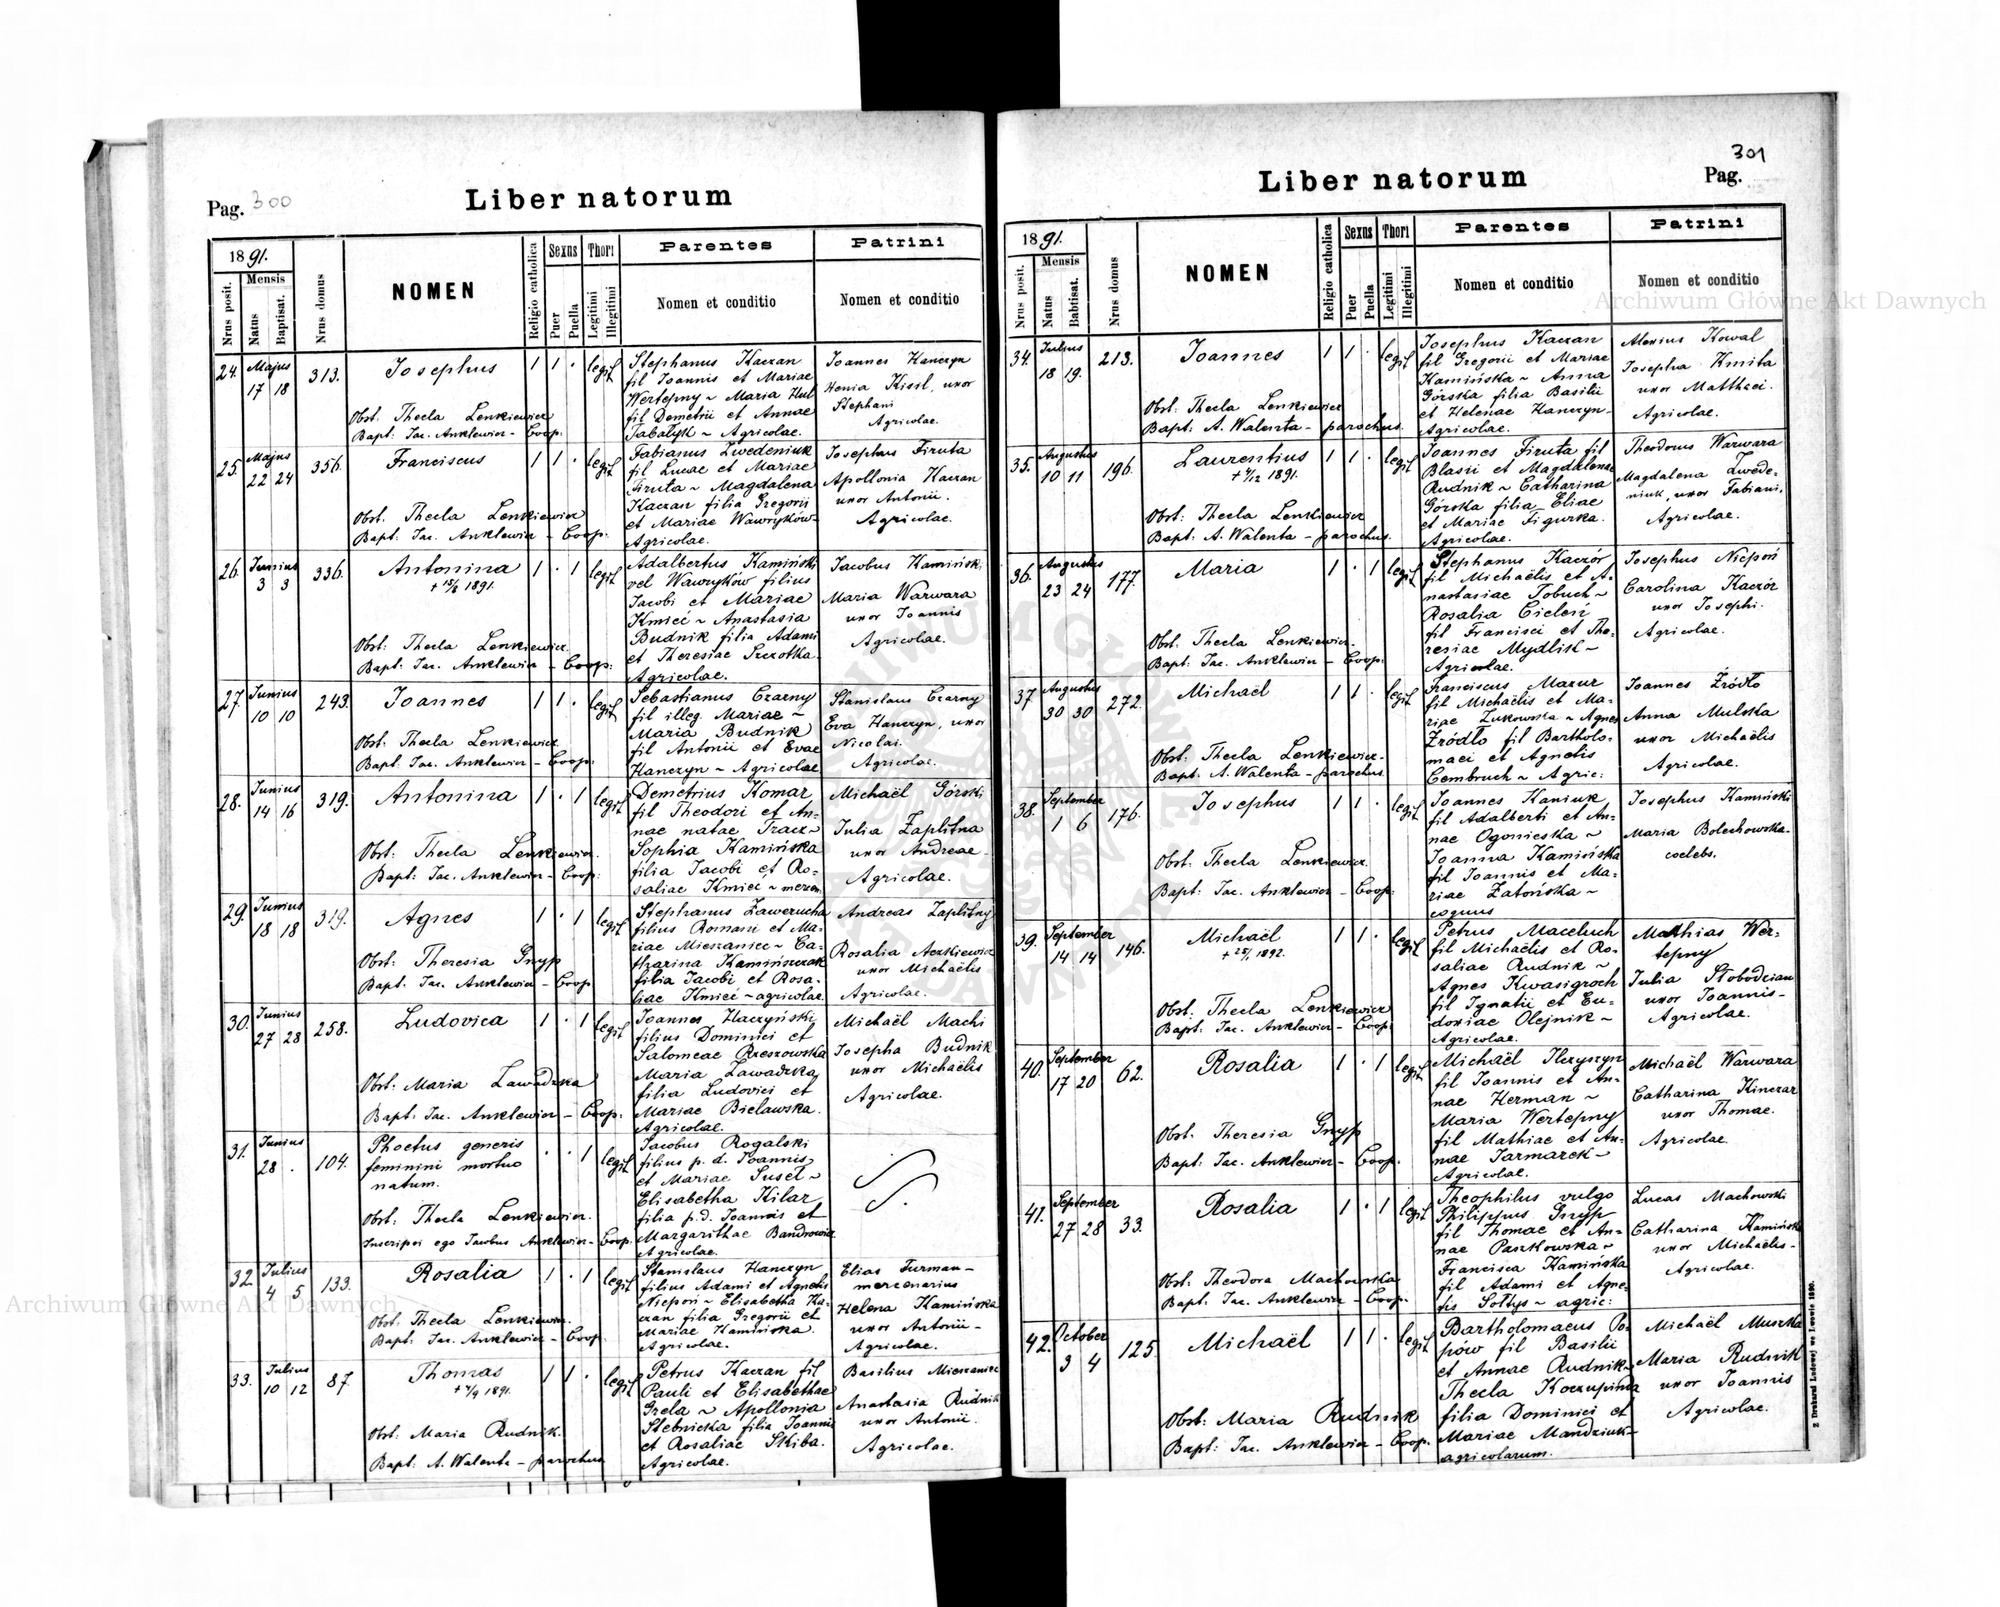 Pag. 300
Liber natorum
1891.
Nrus posit.
Mensis
Natus
Baptisat.
Nrus domus
NOMEN
Religio catholica
Sexus
Puer
Puella
Thori
Legitimi
Illegitimi
Parentes
Nomen et conditio
Patrini
Nomen et conditio
24. Majus 17 18 313. Josephus 1 1 . legit
Obst. Thecla Lenkiewicz
Bapt: Jac. Anklewicz - Coop:
Stephanus Kaczan
fil Joannis et Mariae
Wertepny ~ Maria Hul
fil Demetrii et Annae
Tabatyk ~ Agricolae.
Joannes Hanczyn
Henia Kisil, uxor
Stephani
Agricolae.
25. Majus 22 24 356. Franciscus 1 1 . legit
Obst. Thecla Lenkiewicz
Bapt: Jac. Anklewicz - Coop:
Fabianus Zwedeniuk
fil Lucae et Mariae
Firuta ~ Magdalena
Kaczan filia Gregorii
et Mariae Wawryków-
Agricolae.
Josephus Firuta
Apollonia Kaczan
uxor Antonii.
Agricolae.
26. Junius 3 3 336. Antonina 1 . 1 legit
+ 15/8 1891.
Obst: Thecla Lenkiewicz.
Bapt: Jac. Anklewicz - Coop:
Adalbertus Kamiński
vel Wawryków filius
Jacobi et Mariae
Kmieć ~ Anastasia
Budnik filia Adami
et Theresiae Szczotka.
Agricolae.
Jacobus Kamiński
Maria Warwara
uxor Joannis
Agricolae.
27. Junius 10 10 243. Joannes 1 1 . legit
Obst: Thecla Lenkiewicz
Bapt. Jac. Anklewicz - Coop:
Sebastianus Czarny
fil illeg. Mariae ~
Maria Budnik
fil Antonii et Evae
Hanczyn ~ Agricolae
Stanislaus Czarny
Eva Hanczyn, uxor
Nicolai.
Agricolae.
28. Junius 14 16 319. Antonina 1 . 1 legit
Obst: Thecla Lenkiewicz.
Bapt: Jac. Anklewicz - Coop:
Demetrius Komar
fil Theodori et An-
nae natae Tracz ~
Sophia Kamińska
filia Jacobi et Ro-
saliae Kmieć ~ mercen.
Michaël Górski
Julia Zaplitna
uxor Andreae -
Agricolae.
29. Junius 18 18 319. Agnes 1 . 1 legit
Obst: Theresia Gnyp
Bapt. Jac. Anklewicz - Coop
Stephanus Zawerucha
filius Romani et Ma-
riae Mieszaniec ~ Ca-
tharina Kamińszczak
filia Jacobi et Rosa-
liae Kmieć ~ agricolae.
Andreas Zaplitny
Rosalia Aczkiewicz
uxor Michaëlis
Agricolae.
30. Junius 27 28 258. Ludovica 1 . 1 legit
Obst: Maria Zawadzka
Bapt: Jac. Anklewicz - Coop:
Joannes Haczyński
filius Dominici et
Salomeae Rzeszowska
Maria Zawadzka
filia Ludovici et
Mariae Bielawska.
Agricolae.
Michaël Machi
Josepha Budnik
uxor Michaëlis
Agricolae.
31. Junius 28 . 104. Phoetus generis . . 1 legit
feminini mortuo
natum.
Obst: Thecla Lenkiewicz.
Inscripsi ego Jacobus Anklewicz - Coop.
Jacobus Rogalski
filius p. d. Joannis
et Mariae Susel ~
Elisabetha Kilar
filia p. d. Joannis et
Margarithae Bandrowicz
Agricolae.
32. Julius 4 5 133. Rosalia 1 . 1 legit
Obst: Thecla Lenkiewicz.
Bapt: Jac. Anklewicz - Coop:
Stanislaus Hanczyn
filius Adami et Agnetis
Niepoń ~ Elisabetha Ka-
czan filia Gregorii et
Mariae Kamińska.
Agricolae.
Elias Furman -
mercenarius
Helena Kamińska
uxor Antonii -
Agricolae.
33. Julius 10 12 87 Thomas 1 1 . legit
+ 4/9 1891.
Obst: Maria Rudnik.
Bapt: A. Walenta - parochus
Petrus Kaczan fil
Pauli et Elisabethae
Grela ~ Apollonia
Stebnicka filia Joannis
et Rosaliae Skiba.
Agricolae.
Basilius Mieszaniec
Anastasia Rudnik
uxor Antonii.
Agricolae.
301
Liber natorum
Pag.
1891.
Nrus posit.
Mensis
Natus
Babtisat.
Nrus domus
NOMEN
Religio catholica
Sexus
Puer
Puella
Thori
Legitimi
Illegitimi
Parentes
Nomen et conditio
Patrini
Nomen et conditio
34. Julius 18 19. 213. Joannes 1 1 . legit
Obst: Thecla Lenkiewicz
Bapt: A. Walenta - parochus.
Josephus Kaczan
fil Gregorii et Mariae
Kamińska ~ Anna
Górska filia Basilii
et Helenae Hanczyn -
Agricolae.
Alexius Kowal
Josepha Kmita
uxor Matthaei.
Agricolae.
35. Augustus 10 11 196. Laurentius 1 1 . legit
+ 4/12 1891.
Obst: Thecla Lenkiewicz
Bapt: A. Walenta - parochus.
Joannes Firuta fil
Blasii et Magdalenae
Rudnik ~ Catharina
Górska filia Eliae
et Mariae Figurka.
Agricolae.
Theodorus Warwara
Magdalena Zwede-
niuk, uxor Fabiani.
Agricolae.
36. Augustus 23 24 177. Maria 1 . 1 legit
Obst: Thecla Lenkiewicz.
Bapt: Jac. Anklewicz - Coop:
Stephanus Kaczór
fil Michaëlis et A-
nastasiae Tobuch ~
Rosalia Cieleń
fil Francisci et The-
resiae Mydlik ~
Agricolae.
Josephus Niepoń
Carolina Kaczór
uxor Josephi.
Agricolae.
37. Augustus 30 30 272. Michaël 1 1 . legit
Obst: Thecla Lenkiewicz.
Bapt: A. Walenta - parochus
Franciscus Mazur
fil Michaëlis et Ma-
riae Zukowska ~ Agnes
Źródło fil Bartholo-
maei et Agnetis
Cembruch ~ Agric:
Joannes Źródło
Anna Mulska
uxor Michaëlis
Agricolae.
38. September 1 6 176. Josephus 1 1 . legit
Obst: Thecla Lenkiewicz.
Bapt: Jac. Anklewicz - Coop:
Joannes Kaniuk
fil Adalberti et An-
nae Ogonieska ~
Joanna Kamińska
fil Joannis et Ma-
riae Zatońska ~
coquus
Josephus Kamiński
Maria Bolechowska -
coelebs.
39. September 14 14 146. Michaël 1 1 . legit
+ 25/1 1892.
Obst: Thecla Lenkiewicz
Bapt: Jac. Anklewicz - Coop:
Petrus Maceluch
fil Michaëlis et Ro-
saliae Rudnik ~
Agnes Kwasigroch
fil Ignatii et Eu-
doxiae Olejnik ~
Agricolae.
Mathias Wer-
tepny
Julia Słobodzian
uxor Joannis -
Agricolae.
40. September 17 20 62. Rosalia 1 . 1 legit
Obst: Theresia Gnyp
Bapt: Jac. Anklewicz - Coop.
Michaël Ilczyszyn
fil Joannis et An-
nae Herman ~
Maria Wertepny
fil Mathiae et An-
nae Jarmarek ~
Agricolae.
Michaël Warwara
Catharina Kinczar
uxor Thomae.
Agricolae
41. September 27 28 33. Rosalia 1 . 1 legit
Obst: Theodora Machowska
Bapt: Jac. Anklewicz - Coop.
Theophilus vulgo
Philippus Gnyp
fil Thomae et An-
nae Paszkowska ~
Francisca Kamińska
fil Adami et Agne-
tis Sołtys ~ agric:
Lucas Machowski
Catharina Kamińska
uxor Michaëlis -
Agricolae.
42. October 3 4 125. Michaël 1 1 . legit
Obst: Maria Rudnik
Bapt: Jac. Anklewicz - Coop.
Bartholomaeus Po-
pów fil Basilii
et Annae Rudnik ~
Thecla Koczupinda
filia Dominici et
Mariae Mandziuk -
agricolarum.
Michaël Muszka
Maria Rudnik
uxor Joannis
Agricolae.
Z Drukarni Ludowej we Lwowie 1890.
Archiwum Główne Akt Dawnych
Archiwum Główne Akt Dawnych
ARCHIWUM GŁÓWNE AKT DAWNYCH